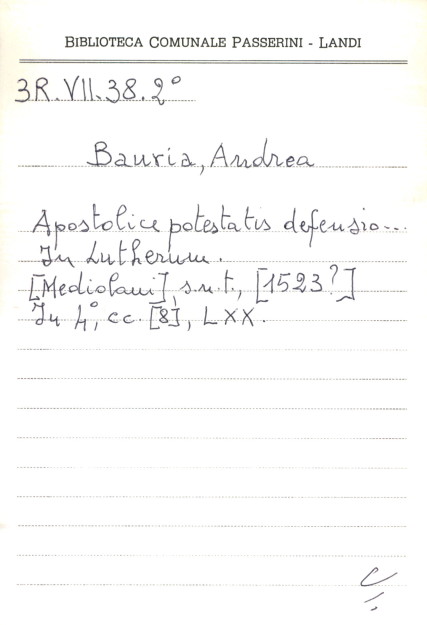 BIBLIOTECA COMUNALE PASSERINI - LANDI
3R.VII.38.2°
Bauria, Andrea
Apostolice potestatis defensio...
In Lutherum.
[Mediolani], s.n.t., [1523?]
In 4°, cc. [8], LXX.